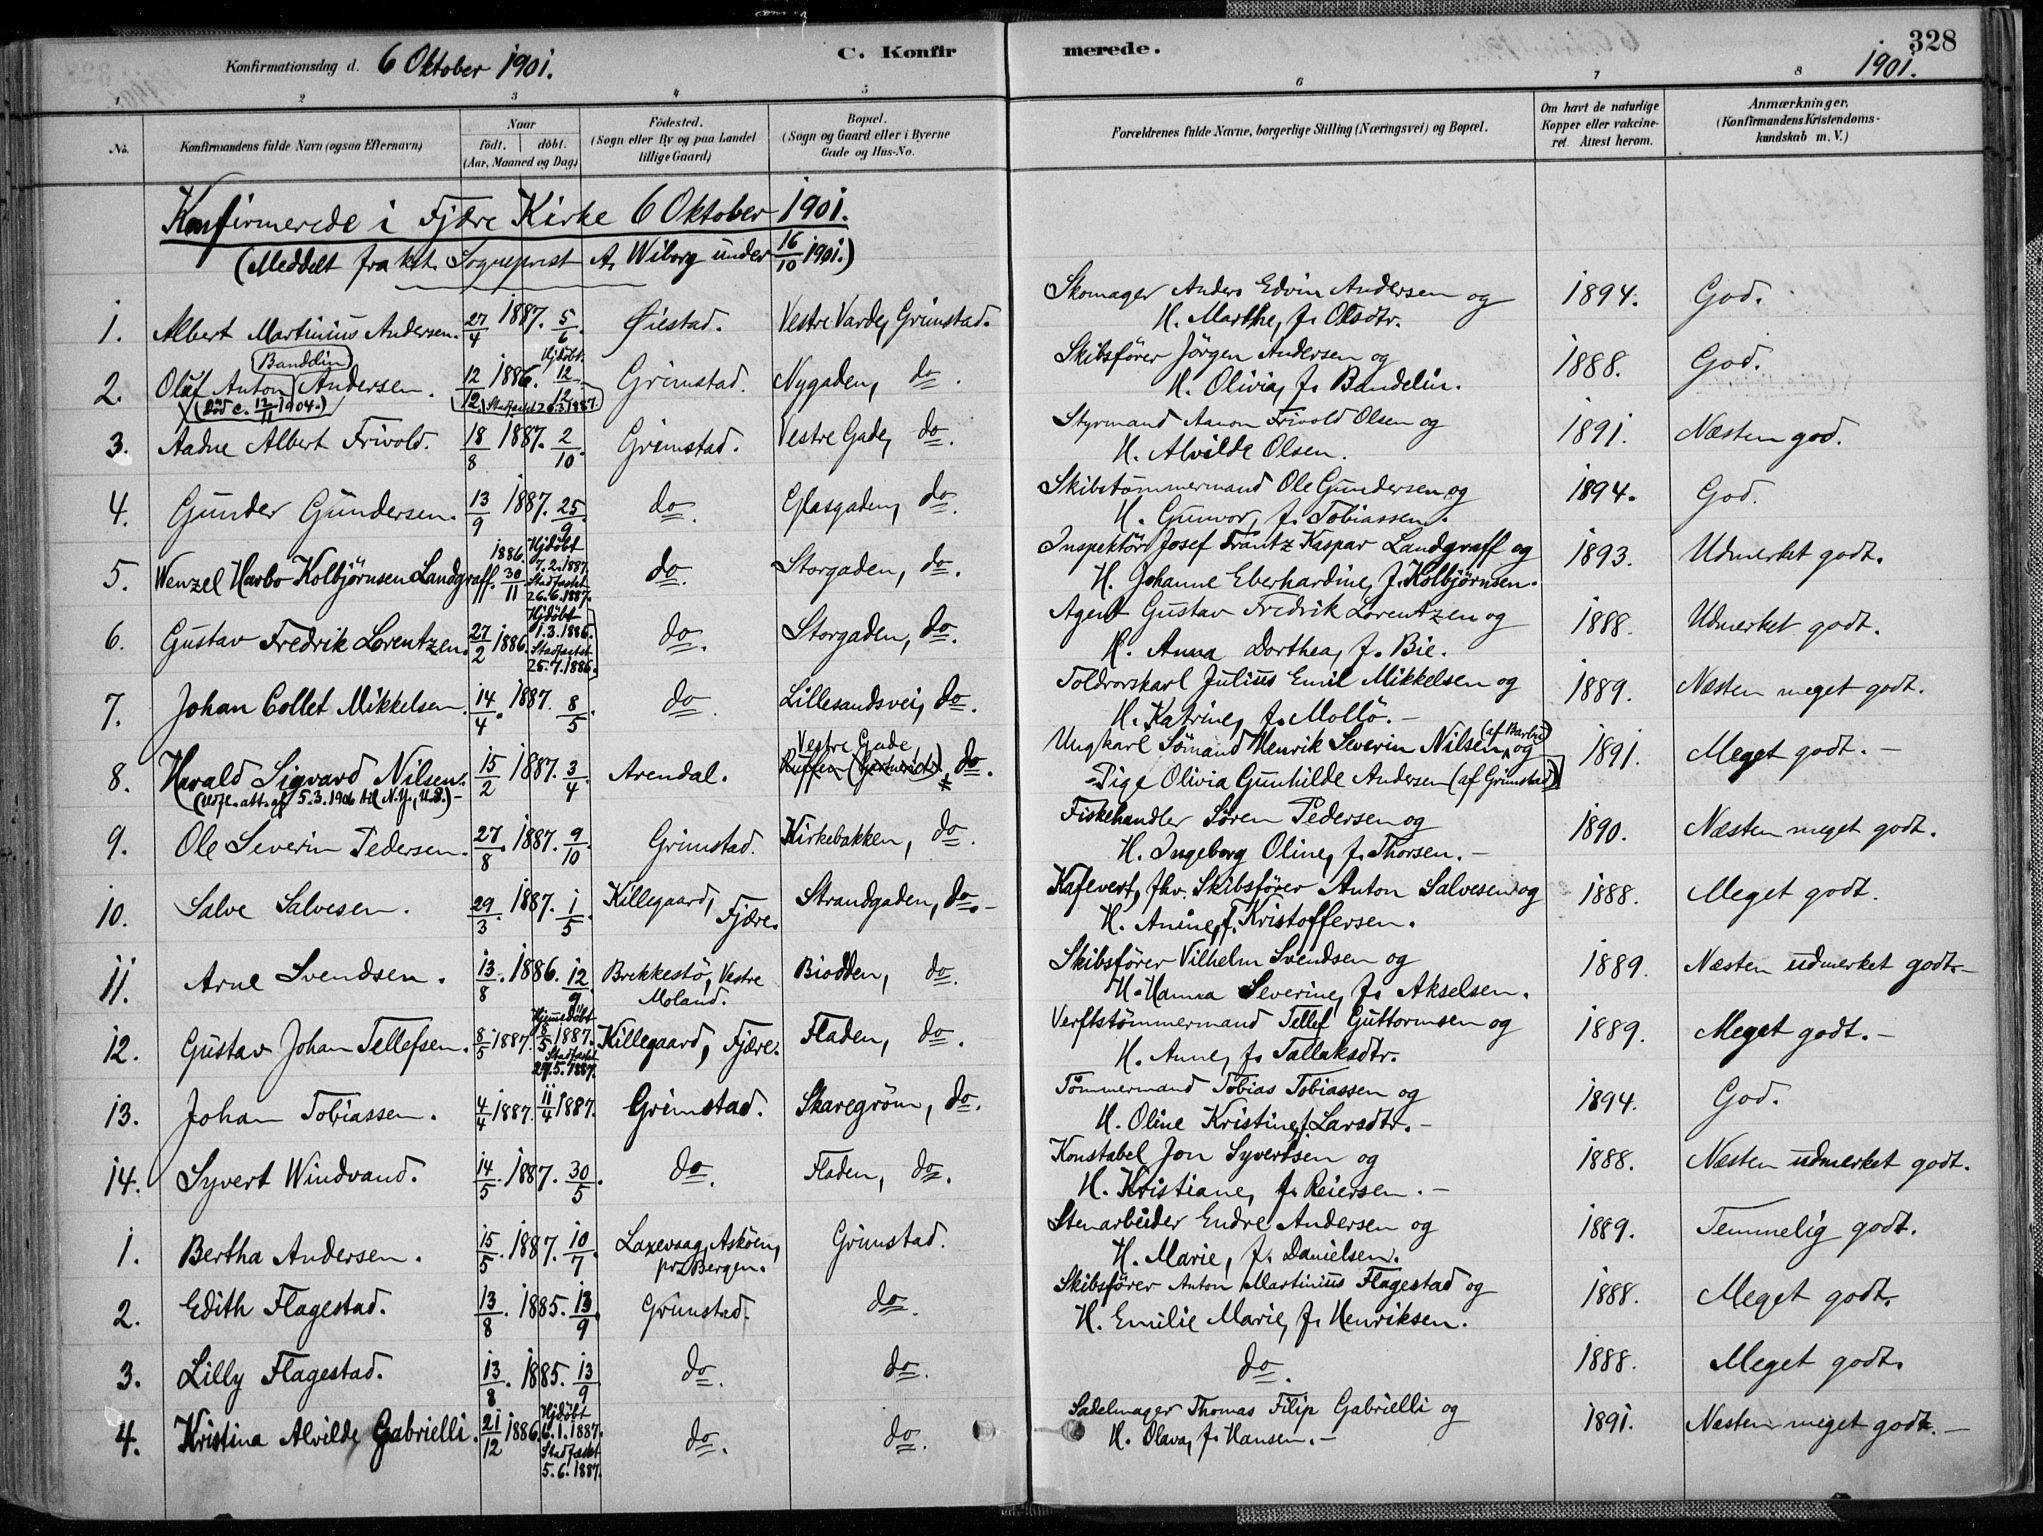 328
Konfirmationsdag d. 6 Oktober 1901.
C. Konfirmerede.
1901.
1 2 3 4 5 6 7 8
No.
Konfirmandens fulde Navn (ogsaa Efternavn)
Naar
født. døbt.
(Aar, Maaned og Dag)
Fødested.
(Sogn eller By og paa Landet
tillige Gaard)
Bopæl.
(Sogn og Gaard eller i Byerne
Gade og Hus-No.
Forældrenes fulde Navne, borgerlige Stilling (Næringsvei) og Bopæl.
Om havt de naturlige
Kopper eller vakcine-
ret. Attest herom.
Anmærkninger.
(Konfirmandens Kristendoms-
kundskab m. V.)
Konfirmerede i Fjære Kirke 6 Oktober 1901.
(Meddelt fra kst. Sogneprest A. Wiborg under 16/10 1901.)
1. Albert Martinius Andersen. 27/4 1887. 5/6. Øiestad. Vestre Varde, Grimstad. Skomager Anders Edvin Andersen og 1894. God.
H. Marthe, f. Olsdtr.
2. Oluf Anton (Bandelin) Andersen. 12/12 1886. Hjdøbt 12/12 Stadfæstet 20.3.1887. Grimstad. Nygaden, do. Skibsfører Jörgen Andersen og 1888. God.
(Død c. 12/11 1904.) H. Olivia, f. Bandelin.
3. Aadne Albert Frivold. 18/8 1887. 2/10. Grimstad. Vestre Gade, do. Styrmand Aanon Frivold Olsen og 1891. Næsten god.
H. Alvilde Olsen.
4. Gunder Gundersen. 13/9 1887. 25/9. do. Glasgaden, do. Skibstømmermand Ole Gundersen og 1894. God.
H. Gunvor, f. Tobiassen.
5. Wenzel Harbo Kolbjørnsen Landgraff. 1886. 30/11 Hjdøbt 7.2.1887. Stadfæstet 26.6.1887. do. Storgaden, do. Inspektör Josef Frantz Kaspar Landgraff og 1893. Udmerket godt.
H. Johanne Eberhardine, f. Kolbjørnsen.
6. Gustav Fredrik Lorentzen. 27/2 1886. Hjdøbt 1.3.1886. Stadfæstet 25.7.1886. do. Storgaden, do. Agent Gustav Fredrik Lorentzen og 1888. Udmerket godt.
H. Anna Dorthea, f. Bie.
7. Johan Collet Mikkelsen. 14/4. 1887. 8/5. do. Lillesandsvei, do. Toldrorskarl Julius Emil Mikkelsen og 1889. Næsten meget godt.
H. Katrine, f. Mollö.-
8. Harald Sigvard Nilsen. 15/2 1887. 3/4. Arendal. Vestre Gade, do. Ungkarl Sømand Henrik Severin Nilsen (af Barbu) og 1891. Meget godt.-
(Udfl.att. af 5.3.1906 til N.Y., U.S.)- Pige Olivia Gunhilde Andersen (af Grimstad)
9. Ole Severin Pedersen. 27/8. 1887. 9/10. Grimstad. Kirkebakken, do. Fiskehandler Søren Pedersen og 1890. Næsten meget godt.
H. Ingeborg Oline, f. Thorsen.-
10. Salve Salvesen. 29/3. 1887. 1/5. Killegaard, Fjære. Strandgaden, do.- Kafevert, fhv. Skibsfører Anton Salvesen og 1888. Meget godt.
H. Anine, f. Kristoffersen.
11. Arne Svendsen. 13/8. 1886. 12/9. Brekkestø, Vestre Moland. Biodden, do. Skibsfører Vilhelm Svendsen og 1889. Næsten udmerket godt.-
H. Hanna Severine, f. Akselsen.
12. Gustav Johan Tellefsen. 8/5 1887. Hjemmedøbt 8/5 1887. Stadfæstet 29.5.1887. Killegaard, Fjære. Fladen, do. Verftstømmermand Tellef Guttormsen og 1889. Meget godt.-
H. Anne, f. Tallaksdtr.
13. Johan Tobiassen. 4/4 1887. 11/4 1887. Grimstad. Skaregrøm, do. Tømmermand Tobias Tobiassen og 1894. God.
H. Oline Kristine, f. Larsdtr.-
14. Syvert Windvand. 14/5. 1887. 30/5. do. Fladen, do. Konstabel Jon Syvertsen og 1888. Næsten udmerket godt.
H. Kristiane, f. Reiersen.-
1. Bertha Andersen. 15/5. 1887. 10/7. Laxevaag, Askøen, pr. Bergen. Grimstad. Stenarbeider Endre Andersen og 1889. Temmelig godt.
H. Marie, f. Danielsen.
2. Edith Flagestad. 13/8. 1885. 13/9. Grimstad. do. Skibsfører Anton Martinius Flagestad og 1888. Meget godt.
H. Emilie Marie, f. Henriksen.
3. Lilly Flagestad. 13/8. 1885. 13/9. do. do. do. 1888. Meget godt.
4. Kristina Alvilde Gabrielli. 21/12 1886. Hjdøbt 6.1.1887. Stadfæstet 5.6.1887. do. do. Sadelmager Thomas Filip Gabrielli og 1891. Næsten meget godt.-
H. Olava, f. Hansen.-